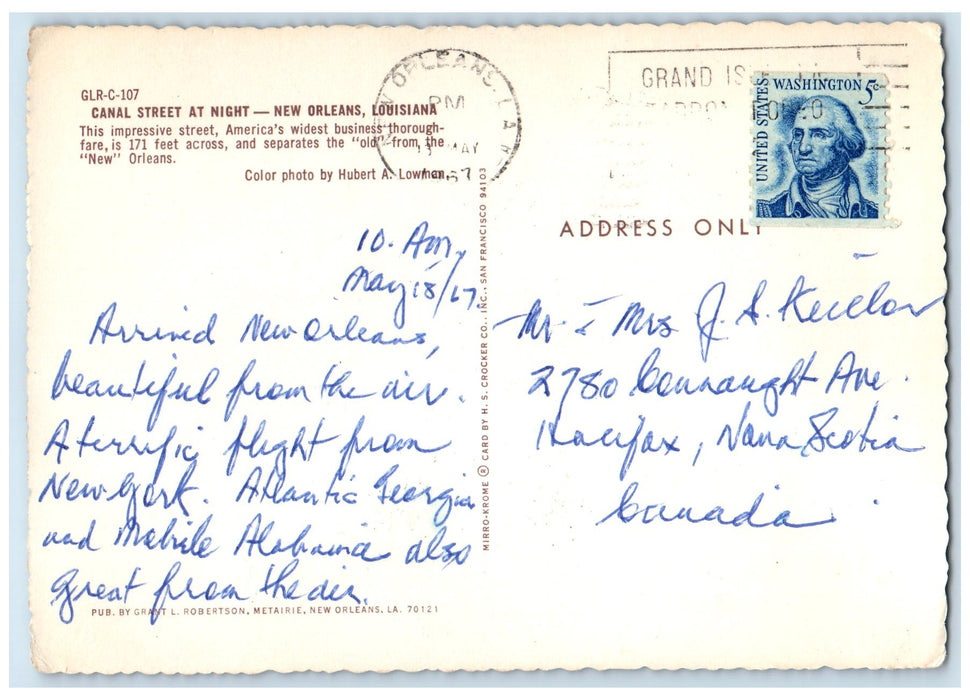 GLR-C-107
CANAL STREET AT NIGHT — NEW ORLEANS, LOUISIANA
This impressive street, America's widest business thorough-
fare, is 171 feet across, and separates the "old" from the
"New" Orleans.
Color photo by Hubert A. Lowman.
10. Am,
May 18/67.
Arrived New Orleans,
beautiful from the air.
A terrific flight from
New York. Atlantic Georgia
and Mobile Alabama also
great from the air.
PUB. BY GRANT L. ROBERTSON, METAIRIE, NEW ORLEANS, LA. 70121
MIRRO-KROME ® CARD BY H. S. CROCKER CO., INC., SAN FRANCISCO 94103
NEW ORLEANS, LA
PM
MAY
1967
GRAND IS
TARPON RODEO
UNITED STATES
WASHINGTON 5c
ADDRESS ONLY
Mr & Mrs J. S.
2780 Connaught Ave.
Halifax, Nova Scotia
Canada